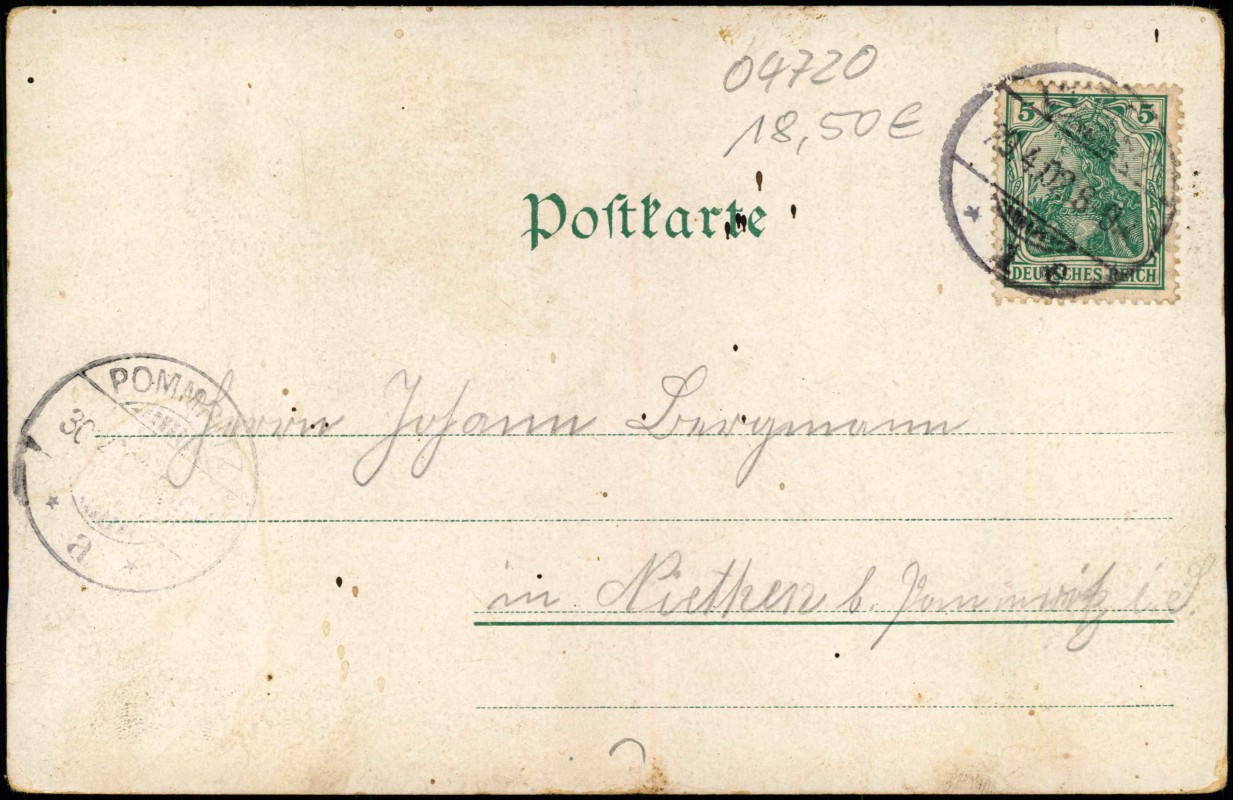 04720
18,50€
Postkarte
5 5
4.02.8-9
DEUTSCHES REICH
e
POMMRITZ
30
a
Herrn Johann Bergmann
in Niethen b. Pommritz i. S.